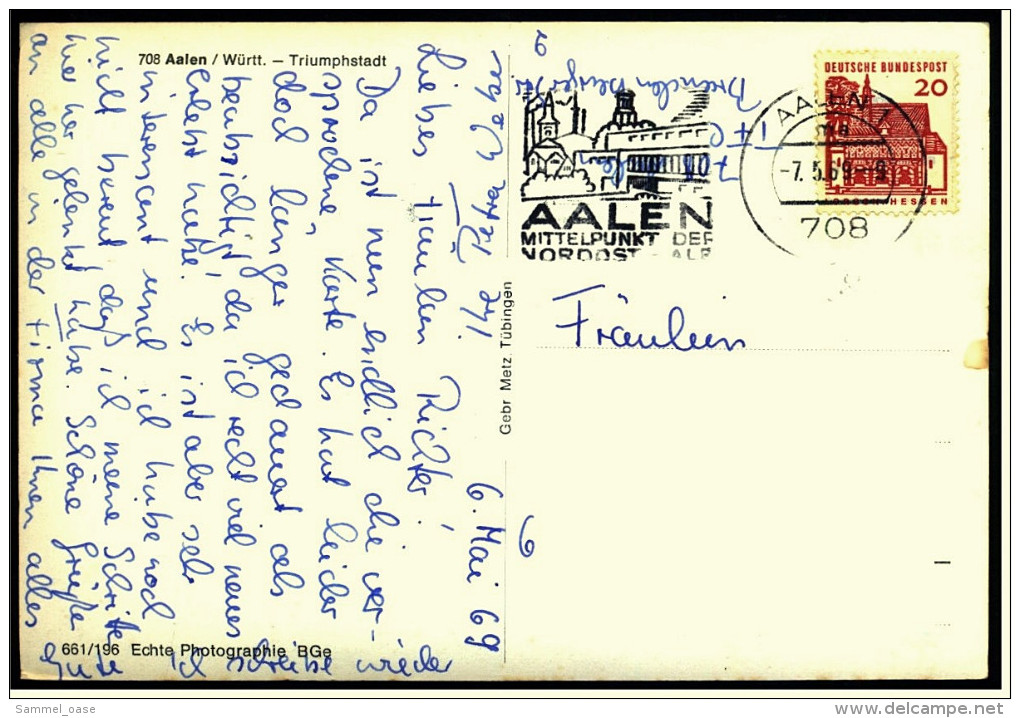 708 Aalen / Württ. – Triumphstadt
6. Mai 69
Liebes Fräulein Richter!
Da ist nun endlich die ver-
sprochene Karte. Es hat leider
doch länger gedauert als
beabsichtigt, da ich recht viel neues
erlebt habe. Es ist aber sehr
interessant und ich habe noch
nicht bereut, daß ich meine Schritte
hier her gelenkt habe. Schöne Grüße
an alle in der Firma Ihnen alles
Gute Ich schreibe wieder
Ihr
661/196 Echte Photographie BGe
Gebr Metz, Tübingen
AALEN
MITTELPUNKT DER
NORDOST - ALB
AALEN 1
-7. 5. 69-
708
DEUTSCHE BUNDESPOST
20
LORSCH HESSEN
Fräulein
6
Sammel_oase